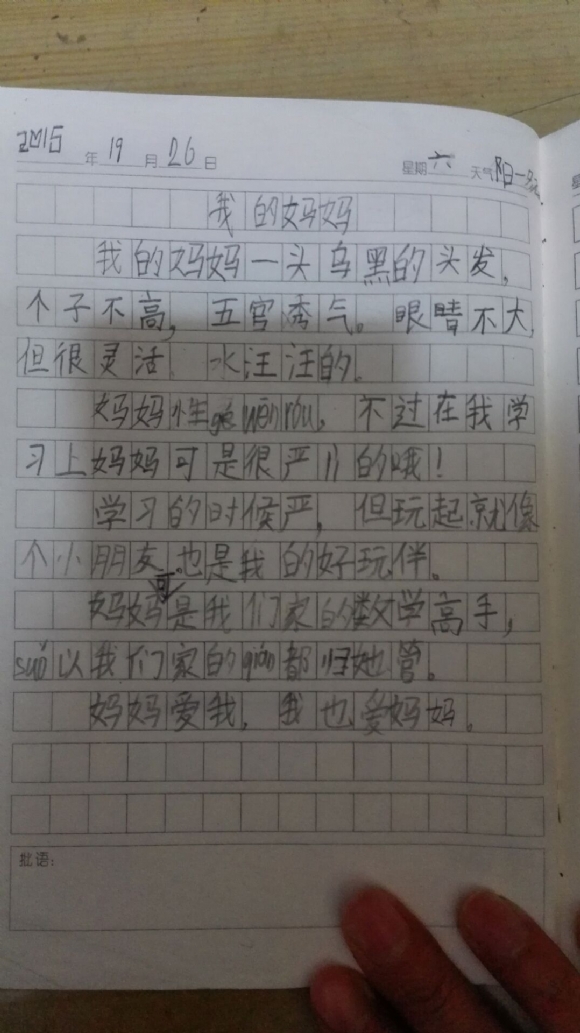 2015年19月26日 星期六 天气阳
我的妈妈
我的妈妈一头乌黑的头发,
个子不高, 五官秀气。眼睛不大,
但很灵活 水汪汪的。
妈妈性gé wēn róu, 不过在我学
习上妈妈可是很严 的哦!
学习的时候严, 但玩起就像
个小朋友。也是我的好玩伴。
妈妈可是我们家的数学高手,
suǒ以我们家的qián都归她管。
妈妈爱我, 我也爱妈妈。
批语: